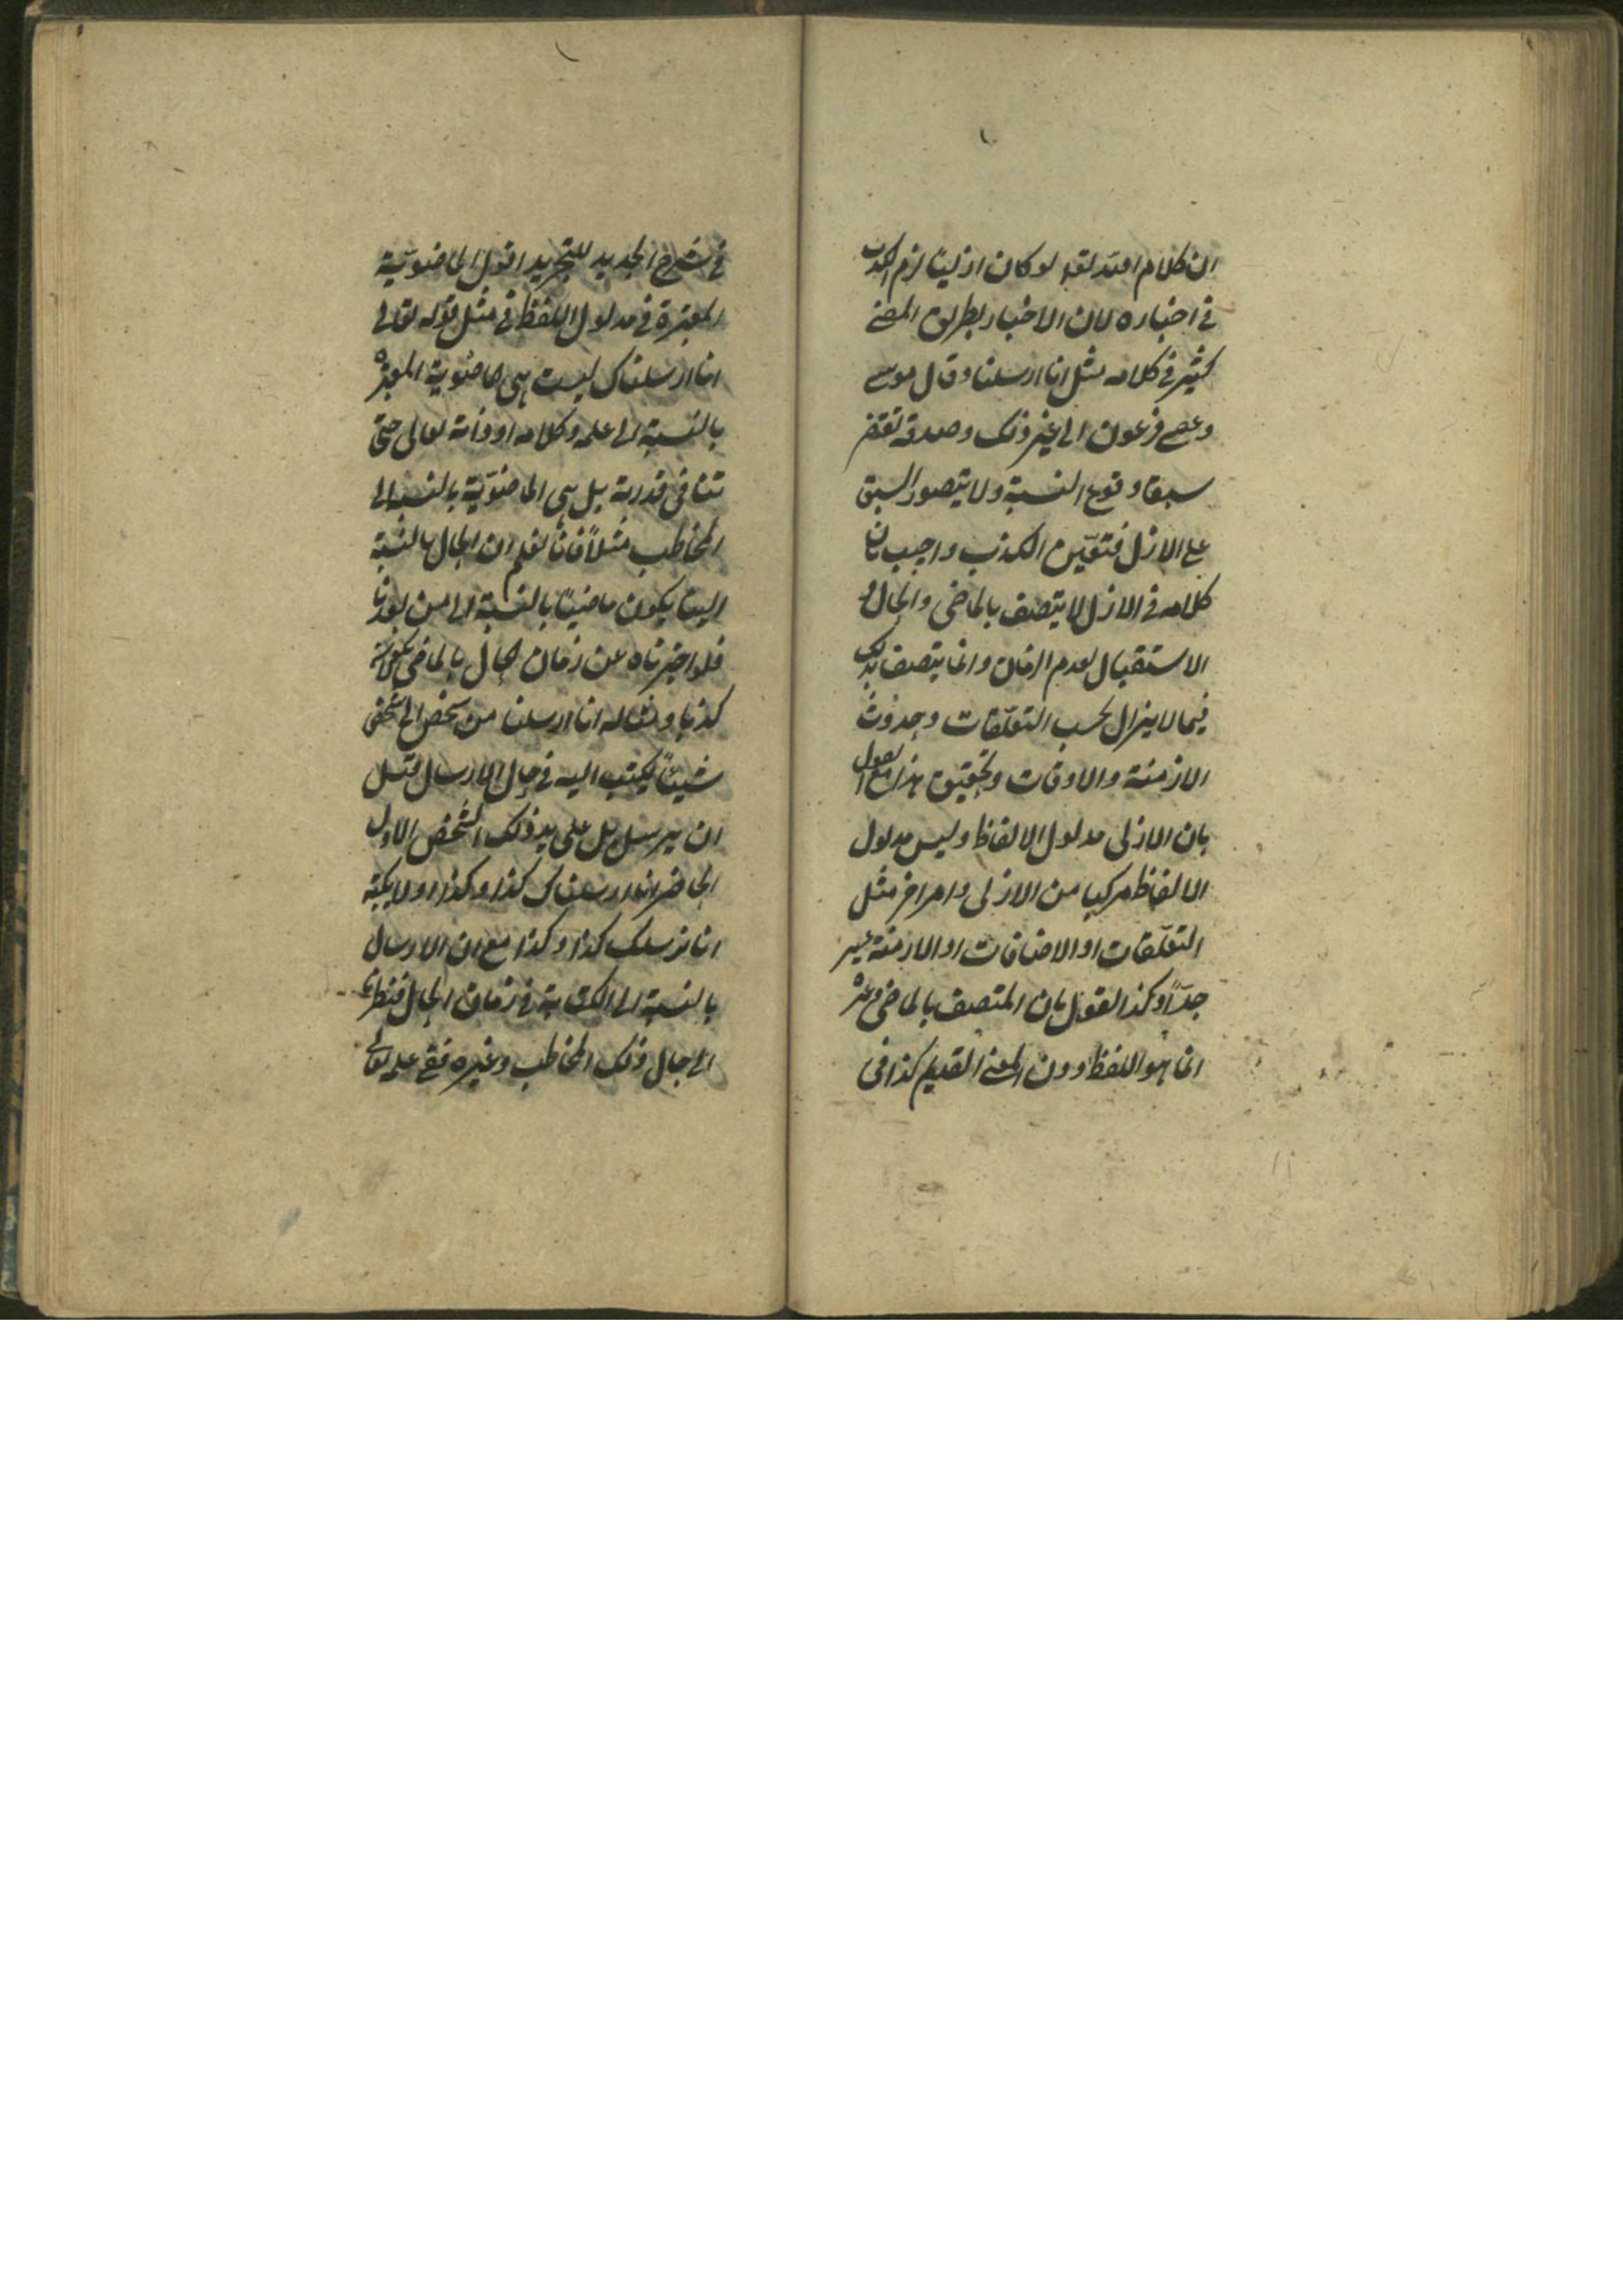 ان كلام الله تعالى لو كان ازليا لزم الكذب
في اخباره لان الاخبار بطريق المضي
كثير في كلامه مثل انا ارسلنا وقال موسى
وعصى فرعون الى غير ذلك وصدقه يقتضي
سبق وقوع النسبة ولا يتصور السبق
على الازل فتعين الكذب واجيب بان
كلامه في الازل لا يتصف بالماضي والحال و
الاستقبال لعدم الزمان وانما يتصف بذلك
فيما لا يزال بحسب التعلقات وحدوث
الازمنة والاوقات وتحقيق هذا مع القول
بان الازلي مدلول الالفاظ وليس مدلول
الالفاظ مركبا من الازلي وامر اخر مثل
التعلقات او الاضافات او الازمنة عسير
جدّاً وكذا القول بان المتصف بالماضي وغيره
انما هو اللفظ دون المعنى القديم كذا في
في شرح الجديد للتجريد اقول الماضويّة
المعتبرة في مدلول اللفظ في مثل قوله تعالى
انا ارسلناك ليست هي ماضوية المعتبرة
بالنسبة الى علمه وكلامه او ذاته تعالى حتى
تنافي قدرته بل هي الماضويّة بالنسبة الى
المخاطب مثلاً فانا نعلم ان الحال بالنسبة
الينا يكون ماضياً بالنسبة الى من بعدنا
فلو اخبرناه عن زمان الحال بالماضي لا يكون
كذبا ومثاله انا ارسلنا من شخص الى شخص
شيئاً يكتب اليه في حال الارسال قبل
ان يرسل بل على يد ذلك الشخص الاول
الحاضر انا ارسلناك كذا وكذا ولا يكتب
انا نرسلك كذا وكذا مع ان الارسال
بالنسبة الى الكتابة في زمان الحال فنظرنا
الى حال ذلك المخاطب وغيره ففي علمه تعالى